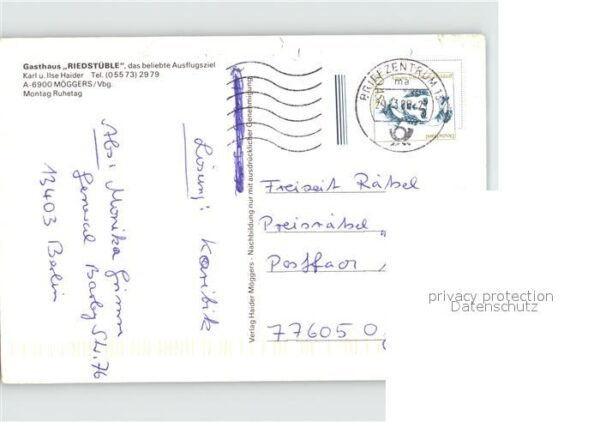 Gasthaus „RIEDSTÜBLE", das beliebte Ausflugsziel
Karl u. Ilse Haider Tel. (05573) 2979
A-6900 MÖGGERS/Vbg.
Montag Ruhetag
Abs: Monika Grimm
General Barby Str. 76
13403 Berlin
Lösung: Karibik
Verlag Haider Möggers - Nachbildung nur mit ausdrücklicher Genehmigung
BRIEFZENTRUM 13
ma
Deutschland
Freizeit Rätsel
Preisrätsel „
Postfach
77605 O
privacy protection
Datenschutz